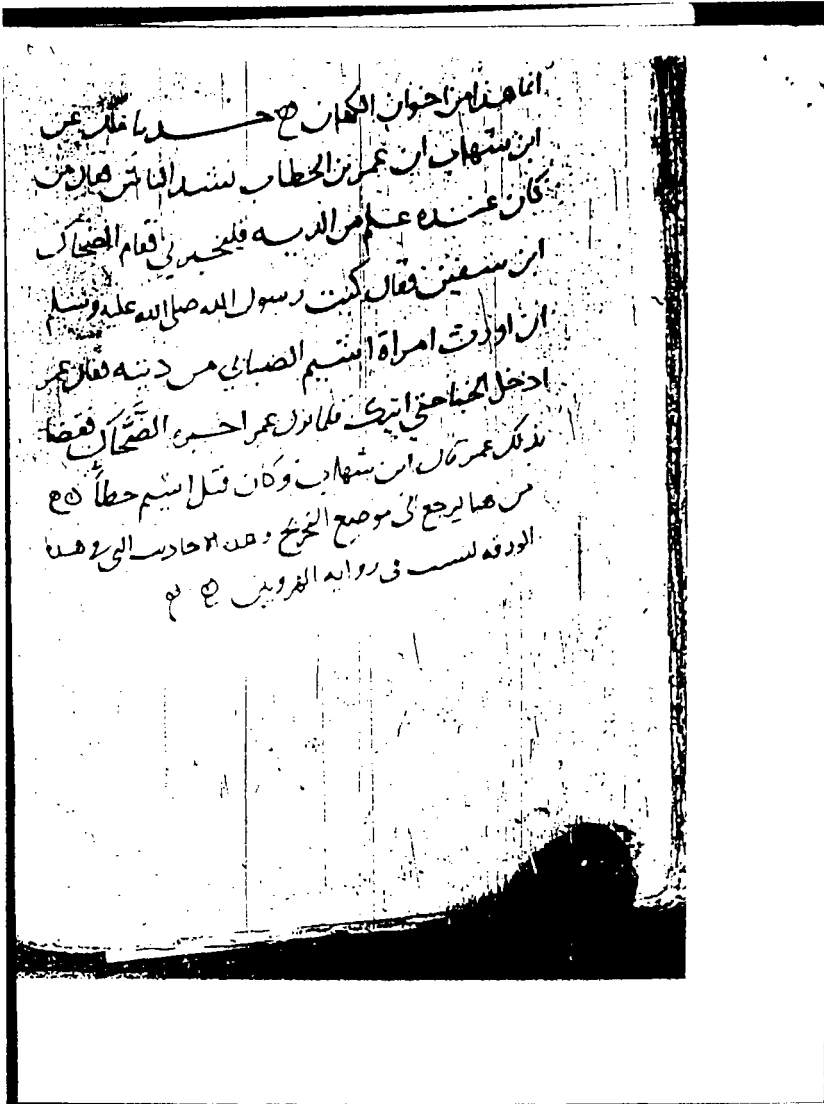 انما هذا من اخوان الكهان حدثنا ملك عن
ابن شهاب ان عمر بن الخطاب نشد الناس من
كان عنده علم من الدية فليخبرني فقام الضحاك
ابن سفين فقال كتب رسول الله صلى الله عليه وسلم
ان اورث امراة اشيم الضبابي من ديته فقال عمر
ادخل الخبا حتى اتيك فلما نزل عمر اخبره الضحاك فقضا
بذلك عمر قال ابن شهاب وكان قتل اشيم خطأ
من هنا يرجع الى موضع التخريج وهذه الاحاديث التي في هذه
الورقه ليست في رواية القزويني